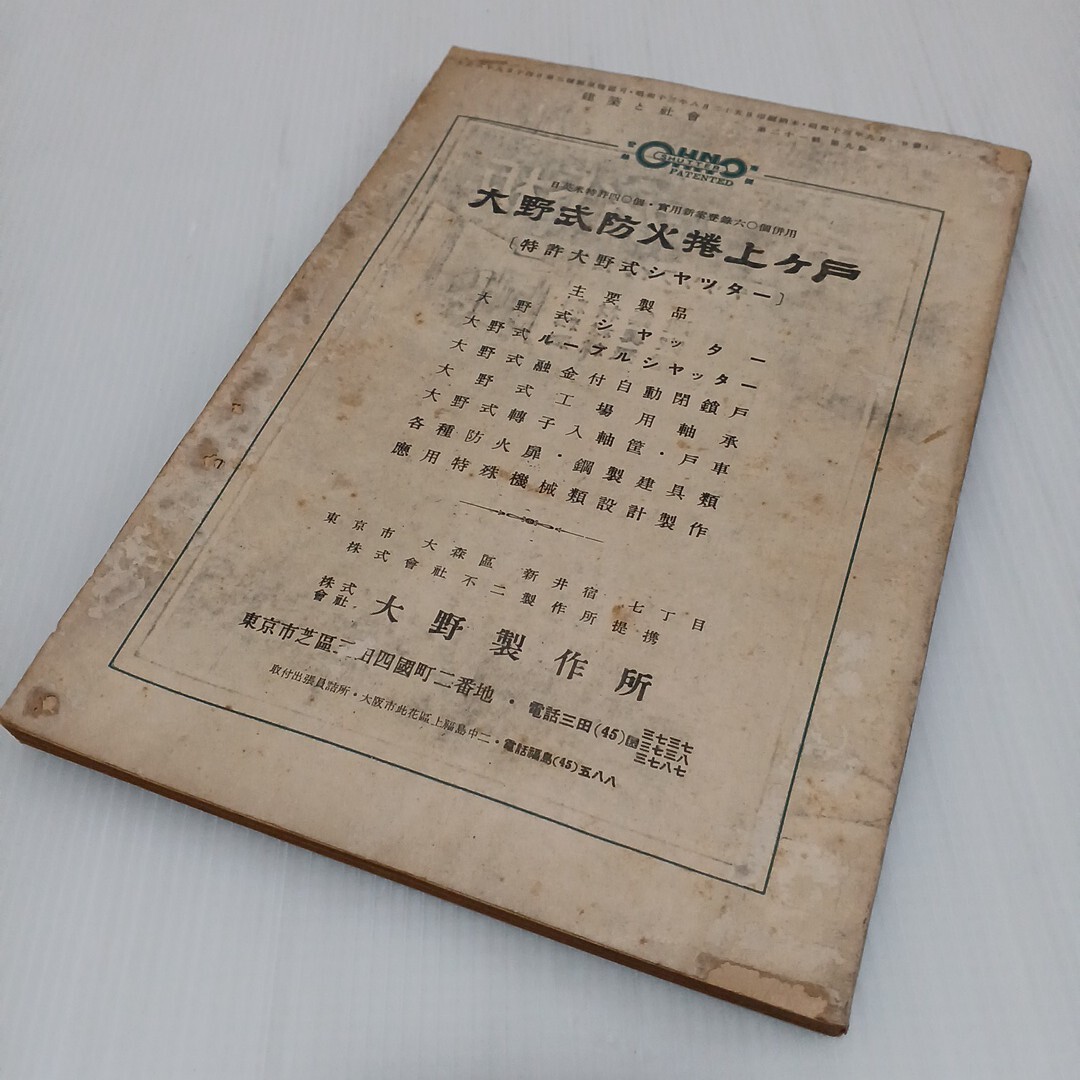 建築と社會
第二十一輯 第九號
OHNO
SHUTTER
PATENTED
日英米特許四〇個・實用新案登錄六〇個併用
大野式防火捲上ヶ戸
〔特許大野式シヤッター〕
主要製品
大野式シヤッター
大野式ルーフルシヤッター
大野式融金付自動閉鎖戸
大野式工場用軸承
大野式轉子入軸筐・戸車
各種防火扉・鋼製建具類
應用特殊機械類設計製作
東京市大森區新井宿七丁目
株式會社不二製作所提携
株式會社 大野製作所
東京市芝區三田四國町二番地・電話三田(45)
三七三七
三七三八
三七八七
取付出張員詰所・大阪市此花區上福島中二・電話福島(45)五八八